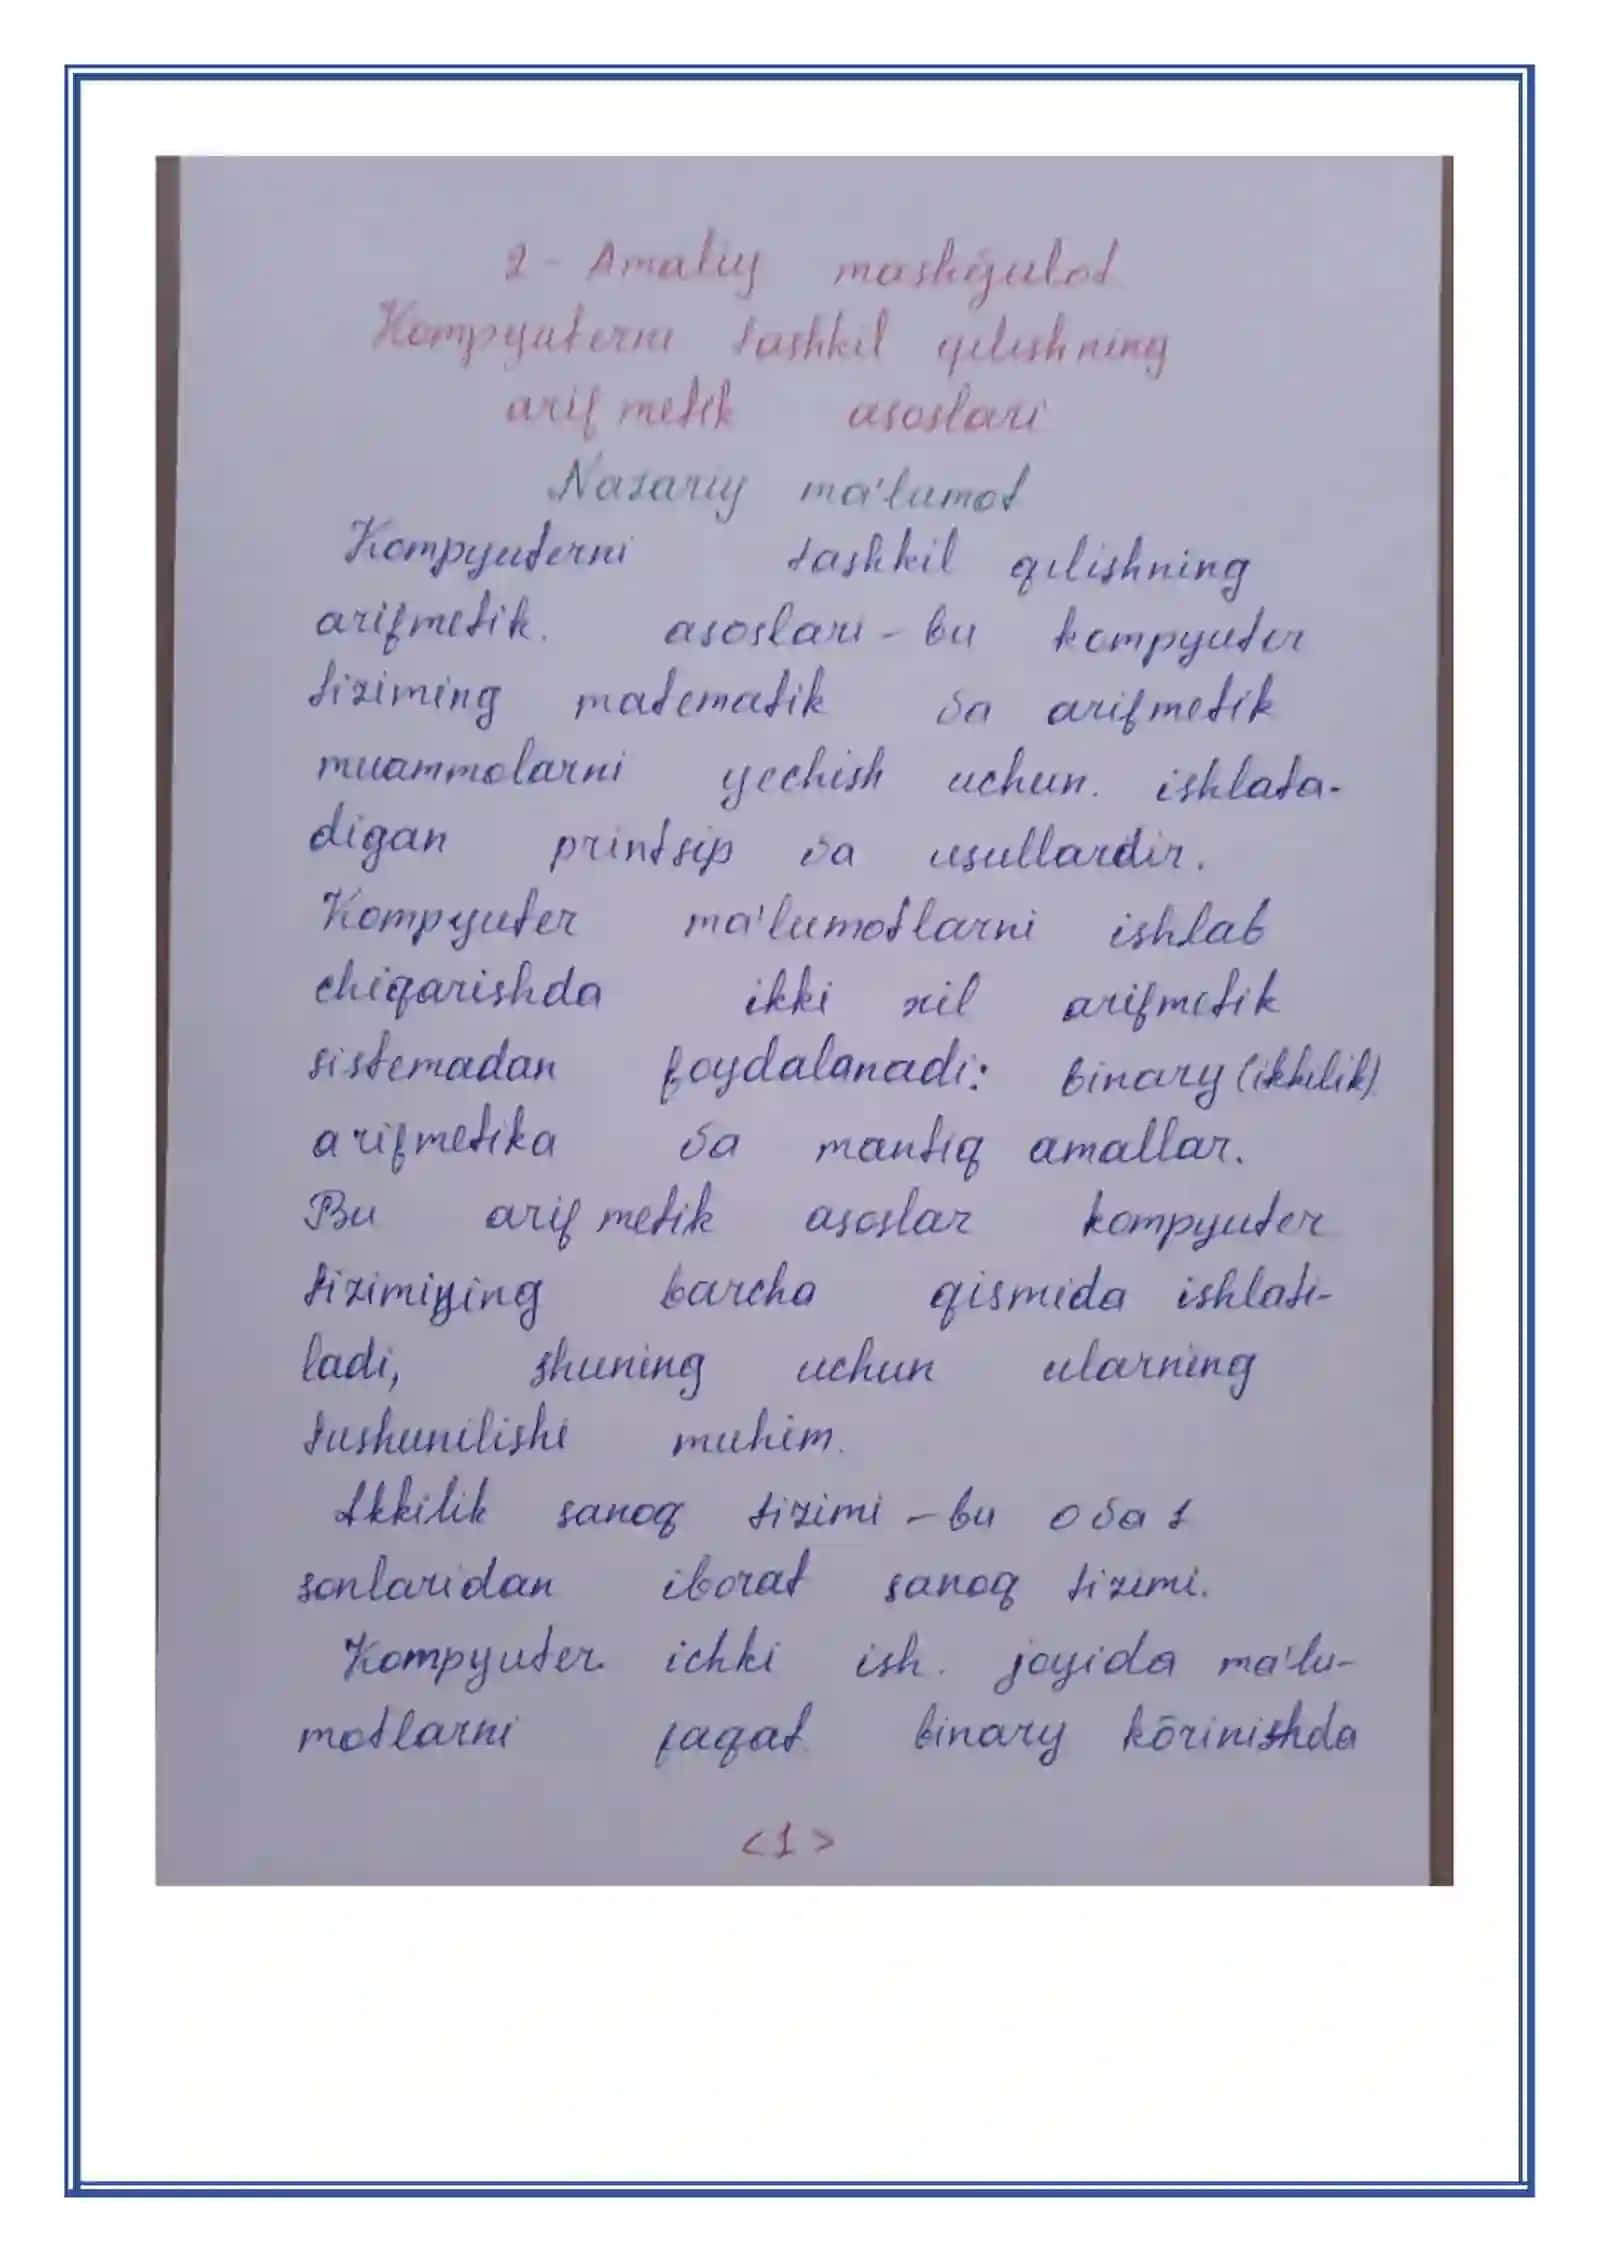 2 - Amaliy mashg̅ulot
Kompyuterni tashkil qilishning
arifmetik asoslari
Nazariy ma'lumot
Kompyuterni tashkil qilishning
arifmetik. asoslari - bu kompyuter
tiziming matematik va arifmetik
muammolarni yechish uchun. ishlata-
digan printsip va usullardir.
Kompyuter ma'lumotlarni ishlab
chiqarishda ikki xil arifmetik
sistemadan foydalanadi: binary (ikkilik)
arifmetika va mantiq amallar.
Bu arifmetik asoslar kompyuter
tizimiying barcha qismida ishlati-
ladi, shuning uchun ularning
tushunilishi muhim.
Ikkilik sanoq tizimi - bu 0 va 1
sonlaridan iborat sanoq tizimi.
Kompyuter ichki ish. joyida ma'lu-
motlarni faqat binary kōrinishda
<1>